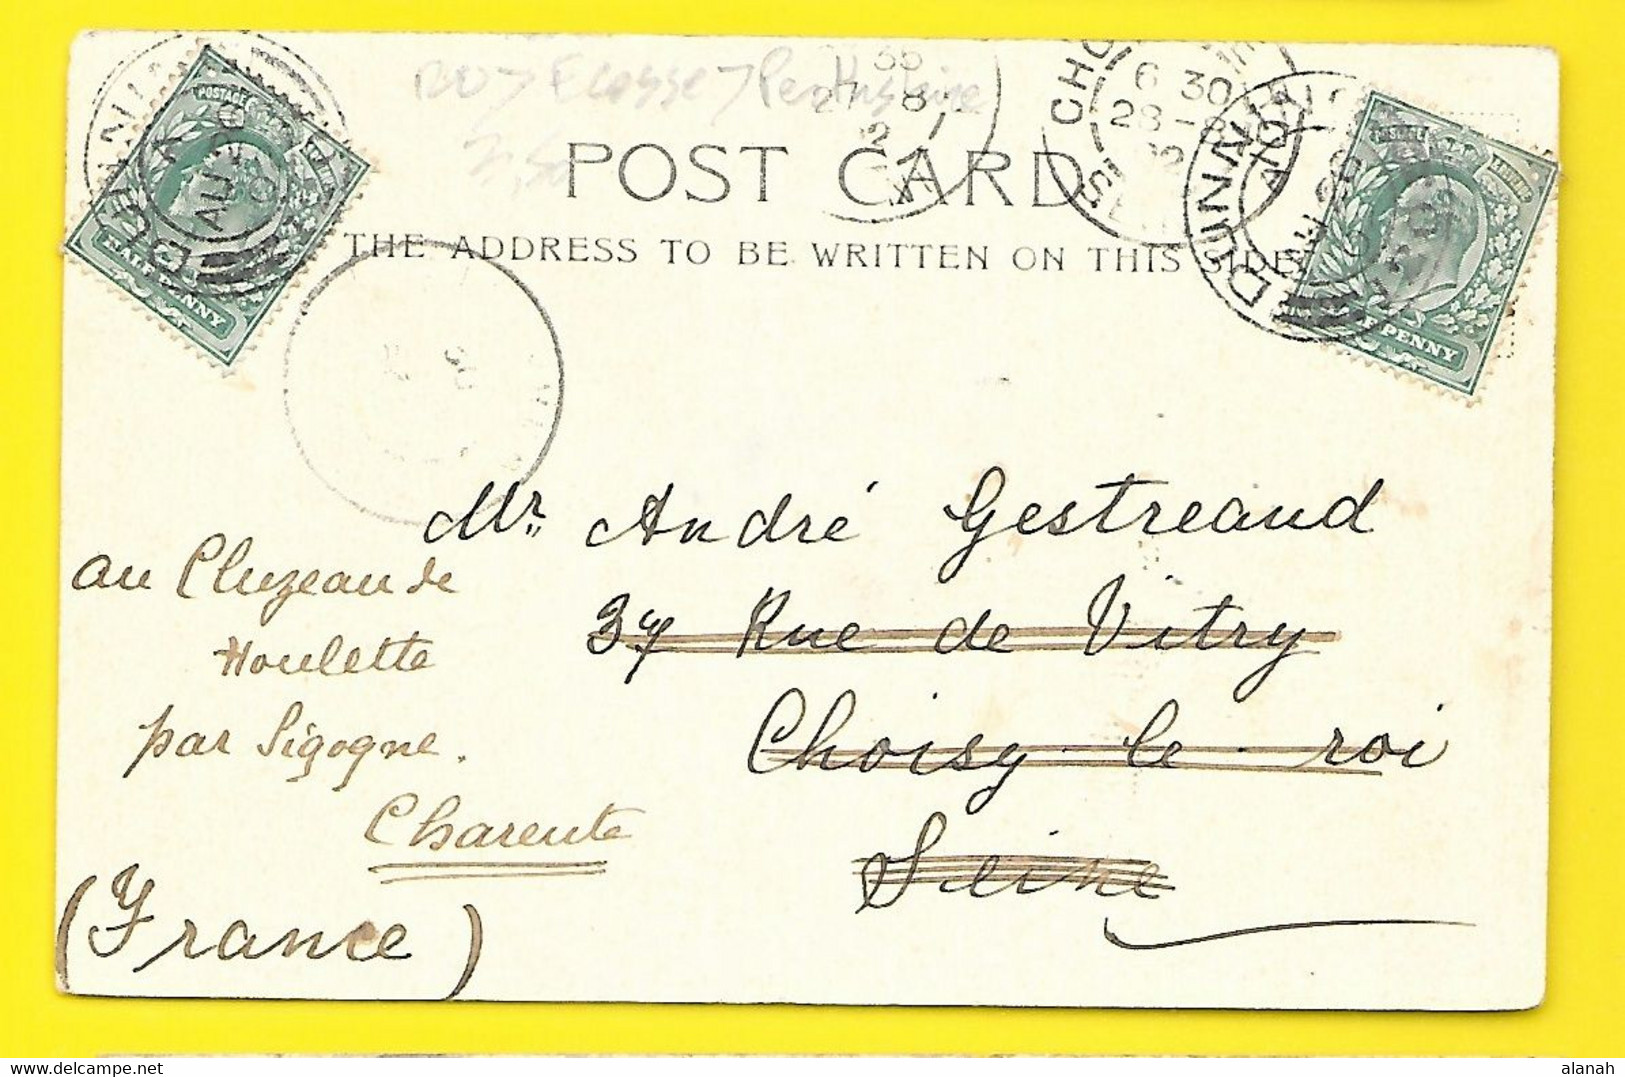 Ecosse
POST CARD
THE ADDRESS TO BE WRITTEN ON THIS SIDE
POSTAGE
HALFPENNY
DUNNING
AU
6 30
28-8
02
DUNNING
PENNY
Mr. André Gestreaud
au Cluzeau de
37 Rue de Vitry
Houlette
par Sigogne.
Choisy le roi
Charente
Seine
(France)
alanah